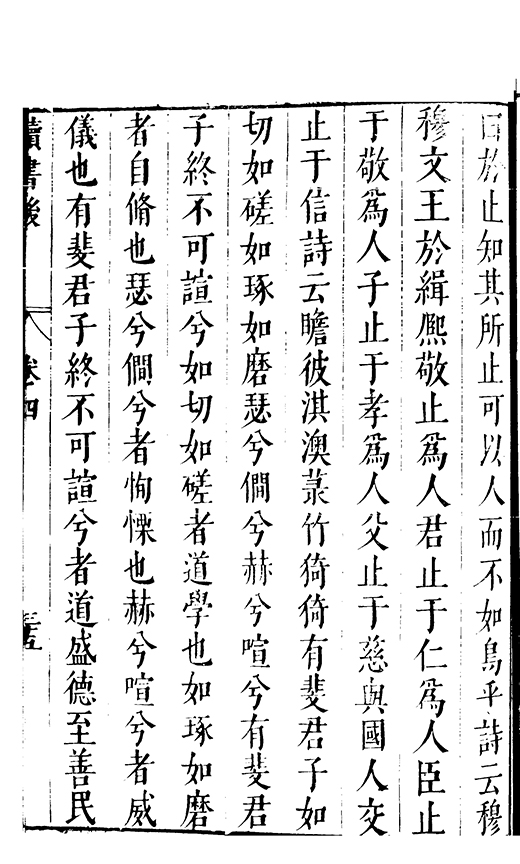 曰於止知其所止可以人而不如鳥乎詩云穆
穆文王於緝熈敬止爲人君止于仁爲人臣止
于敬爲人子止于孝爲人父止于慈與國人交
止于信詩云瞻彼淇澳菉竹猗猗有斐君子如
切如磋如琢如磨瑟兮僩兮赫兮喧兮有斐君
子終不可諠兮如切如磋者道學也如琢如磨
者自脩也瑟兮僩兮者恂慄也赫兮喧兮者威
儀也有斐君子終不可諠兮者道盛德至善民
讀書後
卷四